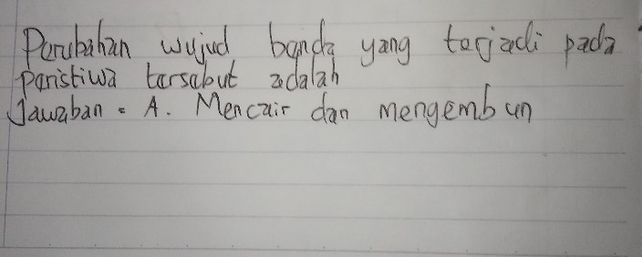 Perubahan wujud benda yang terjadi pada
peristiwa tersebut adalah
Jawaban = A. Mencair dan mengembun